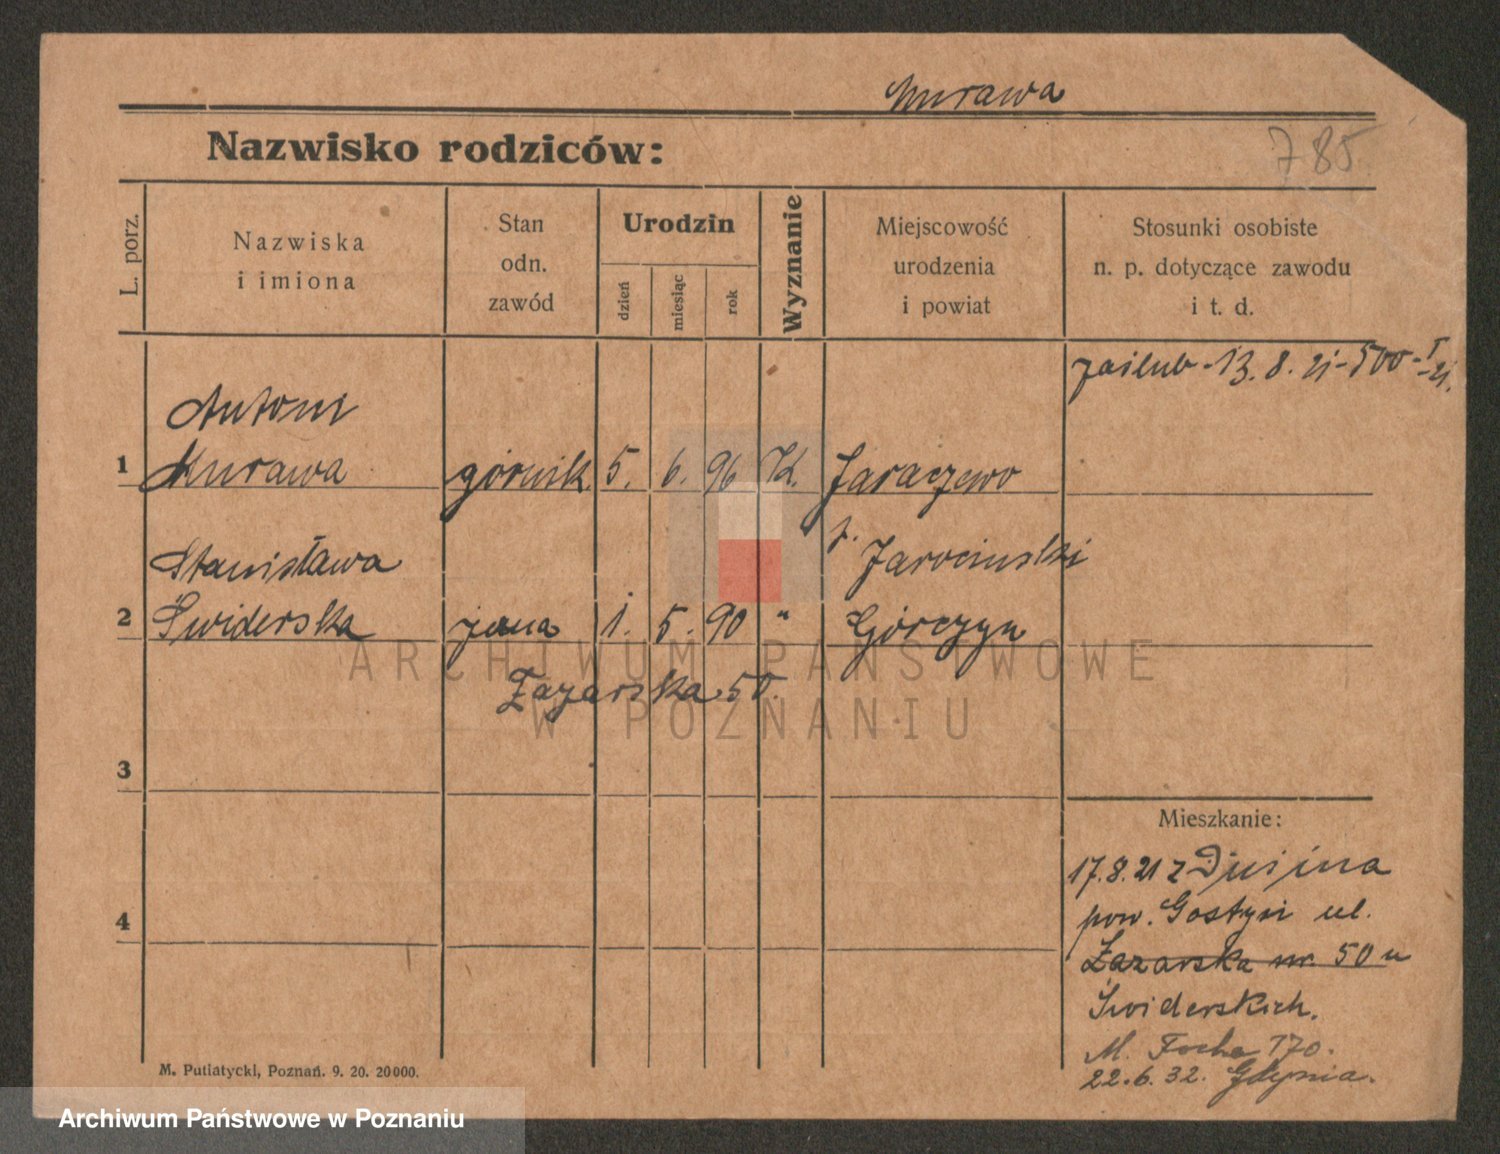 Murawa
Nazwisko rodziców:
785
L. porz.
Nazwiska
i imiona
Stan
odn.
zawód
Urodzin
dzień
miesiąc
rok
Wyznanie
Miejscowość
urodzenia
i powiat
Stosunki osobiste
n. p. dotyczące zawodu
i t. d.
zaślub - 13. 8. 21 - 500 - I - 21.
Antoni
1 Murawa górnik. 5. 6. 96 K. Jaraczewo
p. Jarocinski
Stanisława
2 Świderska żona 1. 5. 90 " Górczyn
Łazarska 50.
3
4
Mieszkanie:
17.8.21 z Dusina
pow. Gostyń ul.
Łazarska nr. 50 u
Świderskich.
M. Focha 170.
22.6.32. Gdynia.
M. Putiatycki, Poznań. 9. 20. 20000.
ARCHIWUM PAŃSTWOWE
W POZNANIU
Archiwum Państwowe w Poznaniu